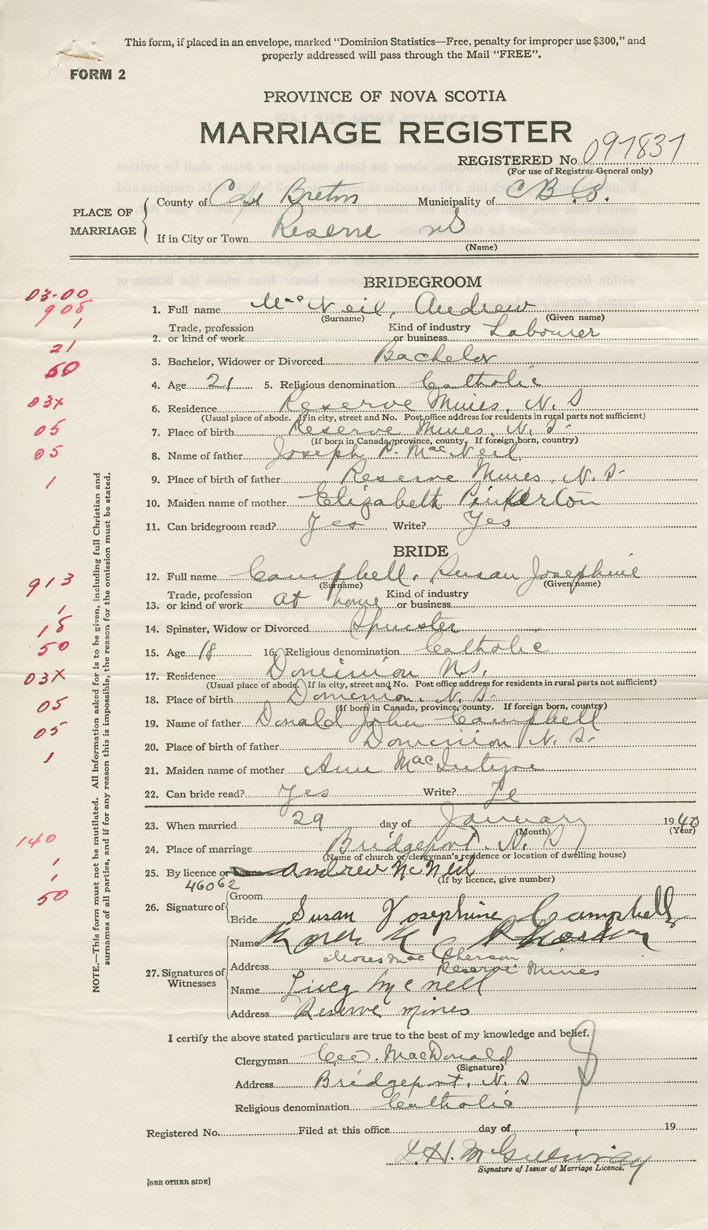 This form, if placed in an envelope, marked "Dominion Statistics—Free, penalty for improper use $300," and
properly addressed will pass through the Mail "FREE".
FORM 2
PROVINCE OF NOVA SCOTIA
MARRIAGE REGISTER
REGISTERED No. 097837
(For use of Registrar General only)
PLACE OF MARRIAGE
County of Cape Breton Municipality of C.B.Co.
If in City or Town Reserve NS
(Name)
BRIDEGROOM
03-00
908
1. Full name MacNeil, Andrew
(Surname) (Given name)
1
Trade, profession Kind of industry
2. or kind of work or business Labourer
21
3. Bachelor, Widower or Divorced Bachelor
50
4. Age 21 5. Religious denomination Catholic
03X
6. Residence Reserve Mines, N.S
(Usual place of abode. If in city, street and No. Post office address for residents in rural parts not sufficient)
05
7. Place of birth Reserve Mines, N.S.
(If born in Canada, province, county. If foreign born, country)
05
8. Name of father Joseph P. MacNeil
1
9. Place of birth of father Reserve Mines, N.S.
10. Maiden name of mother Elizabeth Pinkerton
11. Can bridegroom read? Yes Write? Yes
BRIDE
913
12. Full name Campbell, Susan Josephine
(Surname) (Given name)
1
Trade, profession Kind of industry
13. or kind of work at home or business
18
14. Spinster, Widow or Divorced Spinster
50
15. Age 18 16. Religious denomination Catholic
03X
17. Residence Dominion NS.
(Usual place of abode. If in city, street and No. Post office address for residents in rural parts not sufficient)
05
18. Place of birth Dominion, N.S.
(If born in Canada, province, county. If foreign born, country)
05
19. Name of father Donald John Campbell
1
20. Place of birth of father Dominion N.S.
21. Maiden name of mother Ann MacIntyre
22. Can bride read? Yes Write? Ye
23. When married 29 day of January 1940
(Month) (Year)
140
24. Place of marriage Bridgeport, N.S
(Name of church or clergyman's residence or location of dwelling house)
1
25. By licence or
46062
(If by licence, give number)
1
50
26. Signature of
Groom Andrew McNeil
Bride Susan Josephine Campbell
27. Signatures of Witnesses
Name
Moses MacPherson
Address Reserve Mines
Name Livey McNeil
Address Reserve Mines
I certify the above stated particulars are true to the best of my knowledge and belief.
Clergyman Geo. MacDonald
(Signature)
Address Bridgeport, N.S
Religious denomination Catholic
Registered No. Filed at this office day of 19
J.H. McGillivray
Signature of Issuer of Marriage Licence.
[SEE OTHER SIDE]
NOTE.—This form must not be mutilated. All information asked for is to be given, including full Christian and
surnames of all parties, and if for any reason this is impossible, the reason for the omission must be stated.